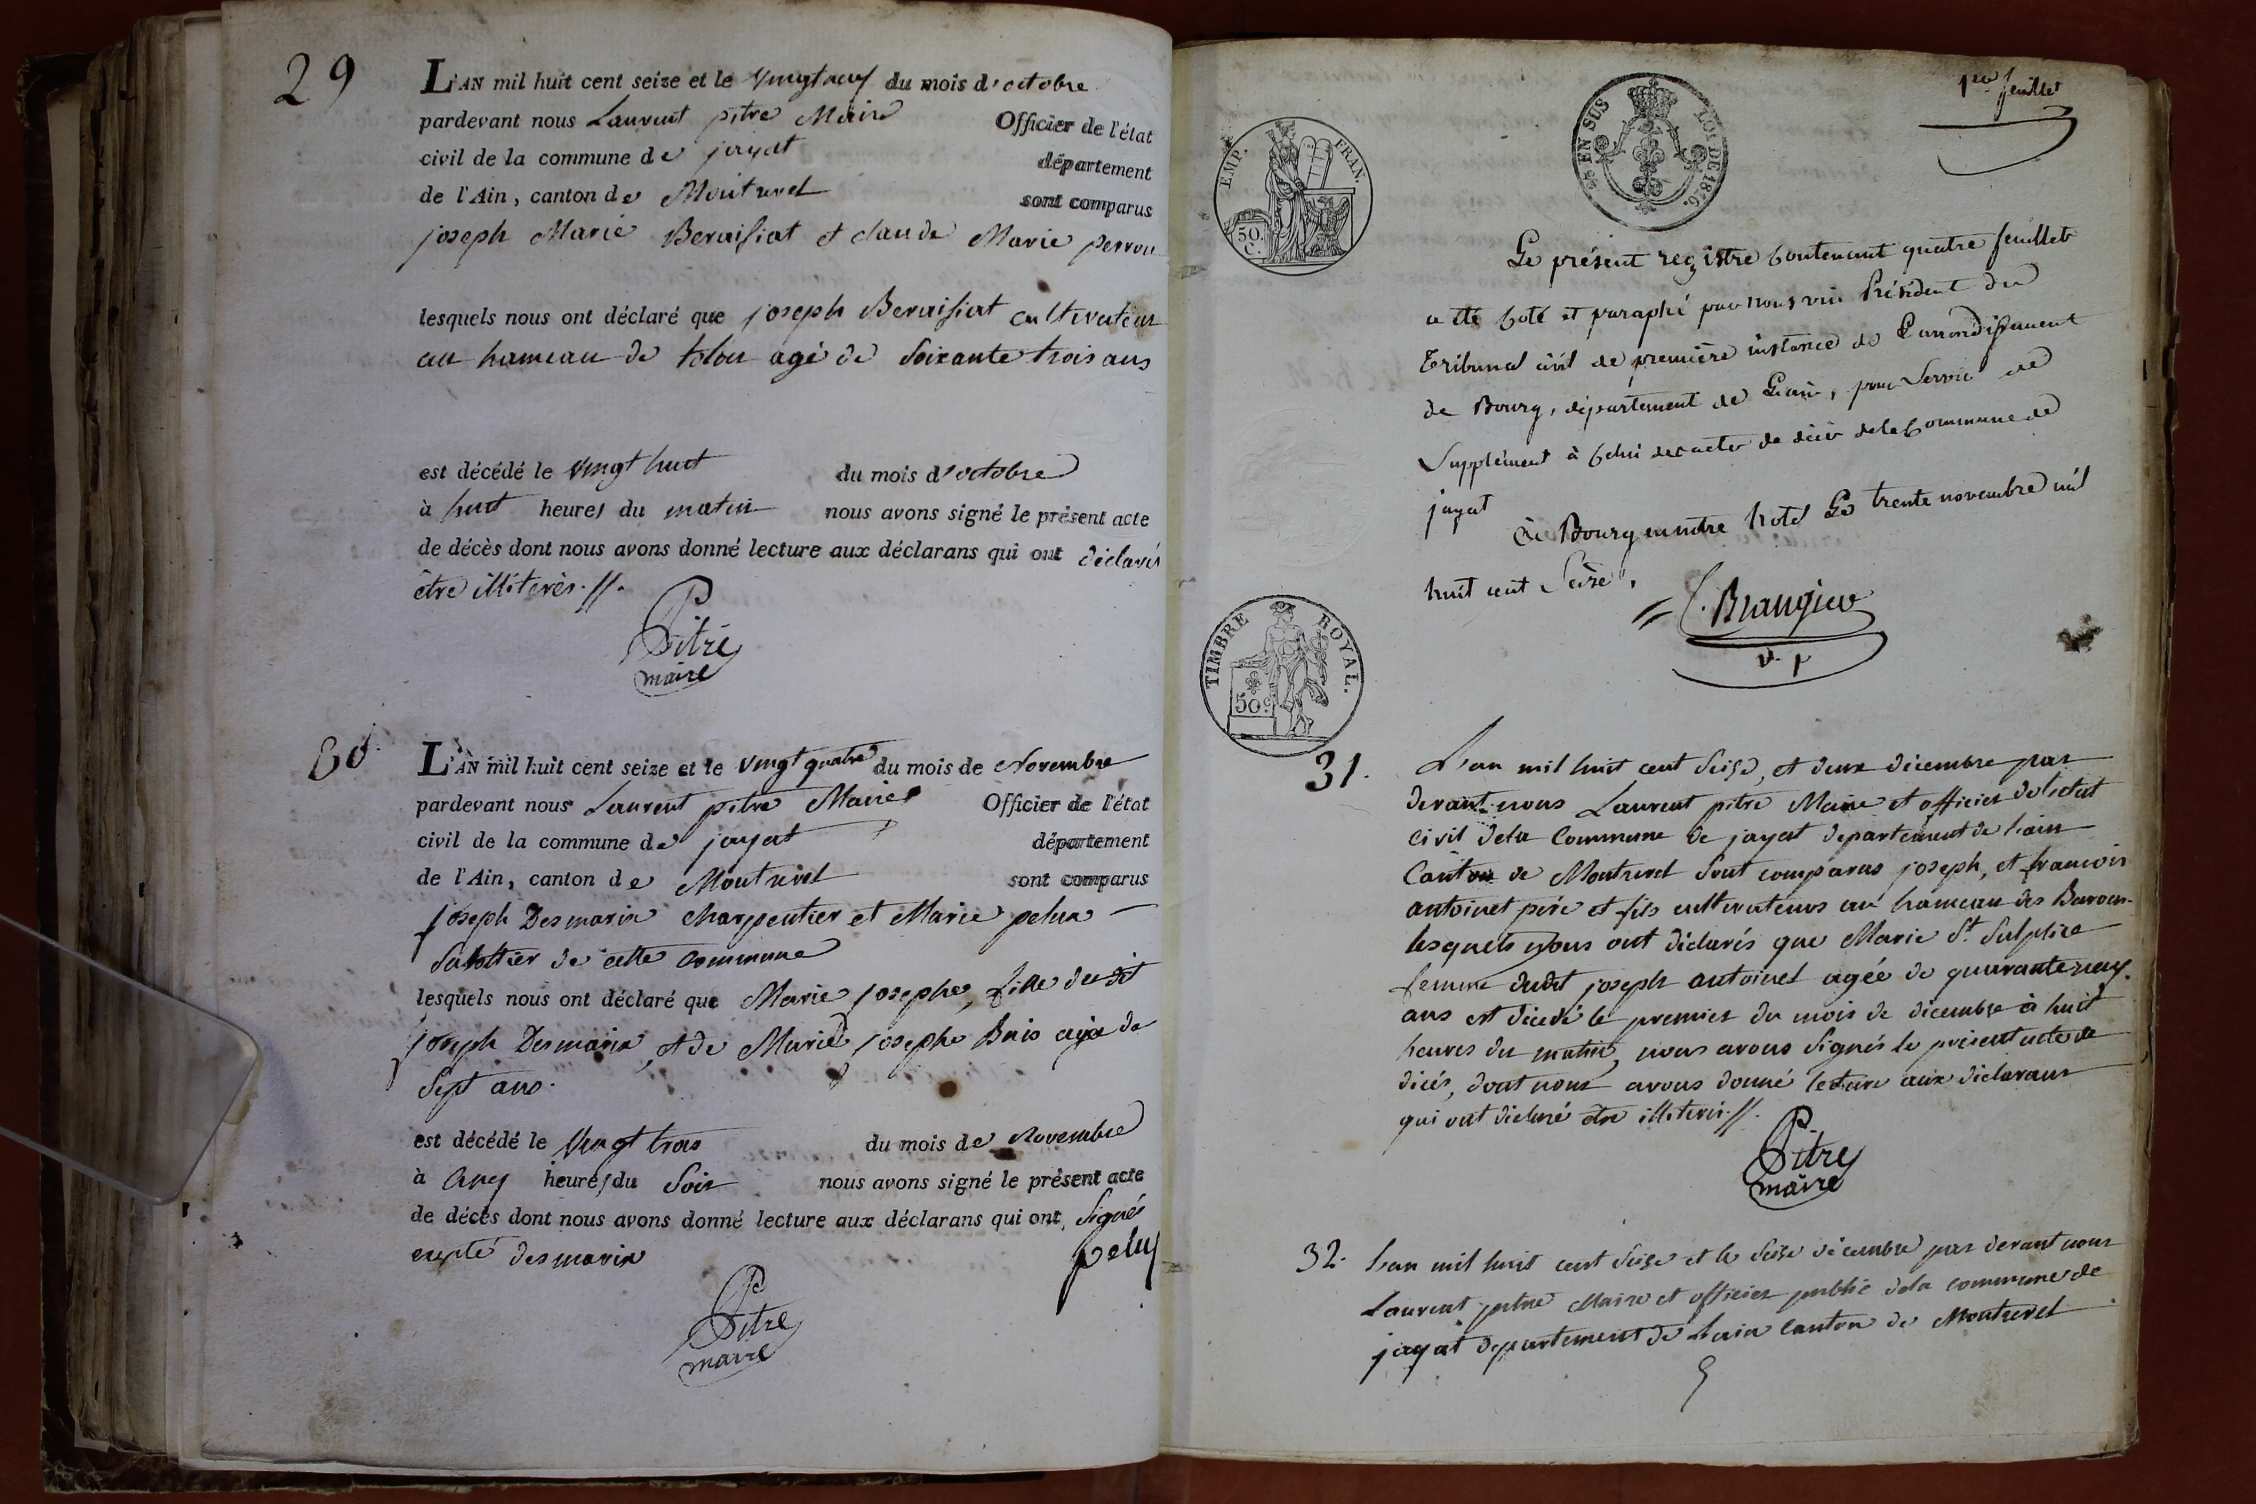 29
L'AN mil huit cent seize et le vingt neuf du mois d'octobre
pardevant nous Laurent pitre Maire Officier de l'état
civil de la commune de jayat département
de l'Ain, canton de Montrevel sont comparus
joseph Marie Beraisiat et claude Marie perron
lesquels nous ont déclaré que joseph Beraisiat cultivateur
au hameau de agé de soixante trois ans
est décédé le vingt huit du mois d'octobre
à huit heures du matin nous avons signé le présent acte
de décès dont nous avons donné lecture aux déclarans qui ont déclarés
être illiterés.//.
Pitre
maire
30
L'AN mil huit cent seize et le vingt quatre du mois de Novembre
pardevant nous Laurent pitre Maire Officier de l'état
civil de la commune de jayat département
de l'Ain, canton de Montrevel sont comparus
joseph Desmaria charpentier et Marie pelus
sabottier de cette commune
lesquels nous ont déclaré que Marie josephe, fille du dit
joseph Desmaria, et de Marie josephe Buis agée de
sept ans.
est décédé le vingt trois du mois de Novembre
à cinq heures du soir nous avons signé le présent acte
de décès dont nous avons donné lecture aux déclarans qui ont signés
excepté desmaria pelus
Pitre
maire
1er feuillet
EMP. FRAN.
50. C.
EN SUS LOI DE 1816.
Le présent registre contenant quatre feuillets
a été coté et paraphé par nous vice Président du
Tribunal civil de première instance de l'arrondissement
de Bourg, département de l'ain, pour servir de
supplément à celui des actes de décès de la commune de
jayat
à Bourg en notre hotel le trente novembre mil
huit cent seize,
Brangier
v. p
TIMBRE ROYAL.
50 c
31.
L'an mil huit cent seize, et deux décembre par
devant nous Laurent pitre Maire et officier de l'etat
civil dela commune de jayat departement de l'ain
Canton de Montrevel sont comparus joseph, et francois
antoinet père et fils cultivateurs au hameau des
lesquels nous ont déclarés que Marie St. Sulpice
femme dudit joseph antoinet agée de quarante neuf
ans est décédé le premier du mois de décembre à huit
heures du matin, nous avons signés le présent acte de
décés, dont nous avons donné lecture aux déclarans
qui ont déclaré être illiterés.//.
Pitre
maire
32. L'an mil huit cent seize et le seize décembre par devant nous
Laurent pitre Maire et officier public dela commune de
jayat departement de L'ain canton de Montrevel